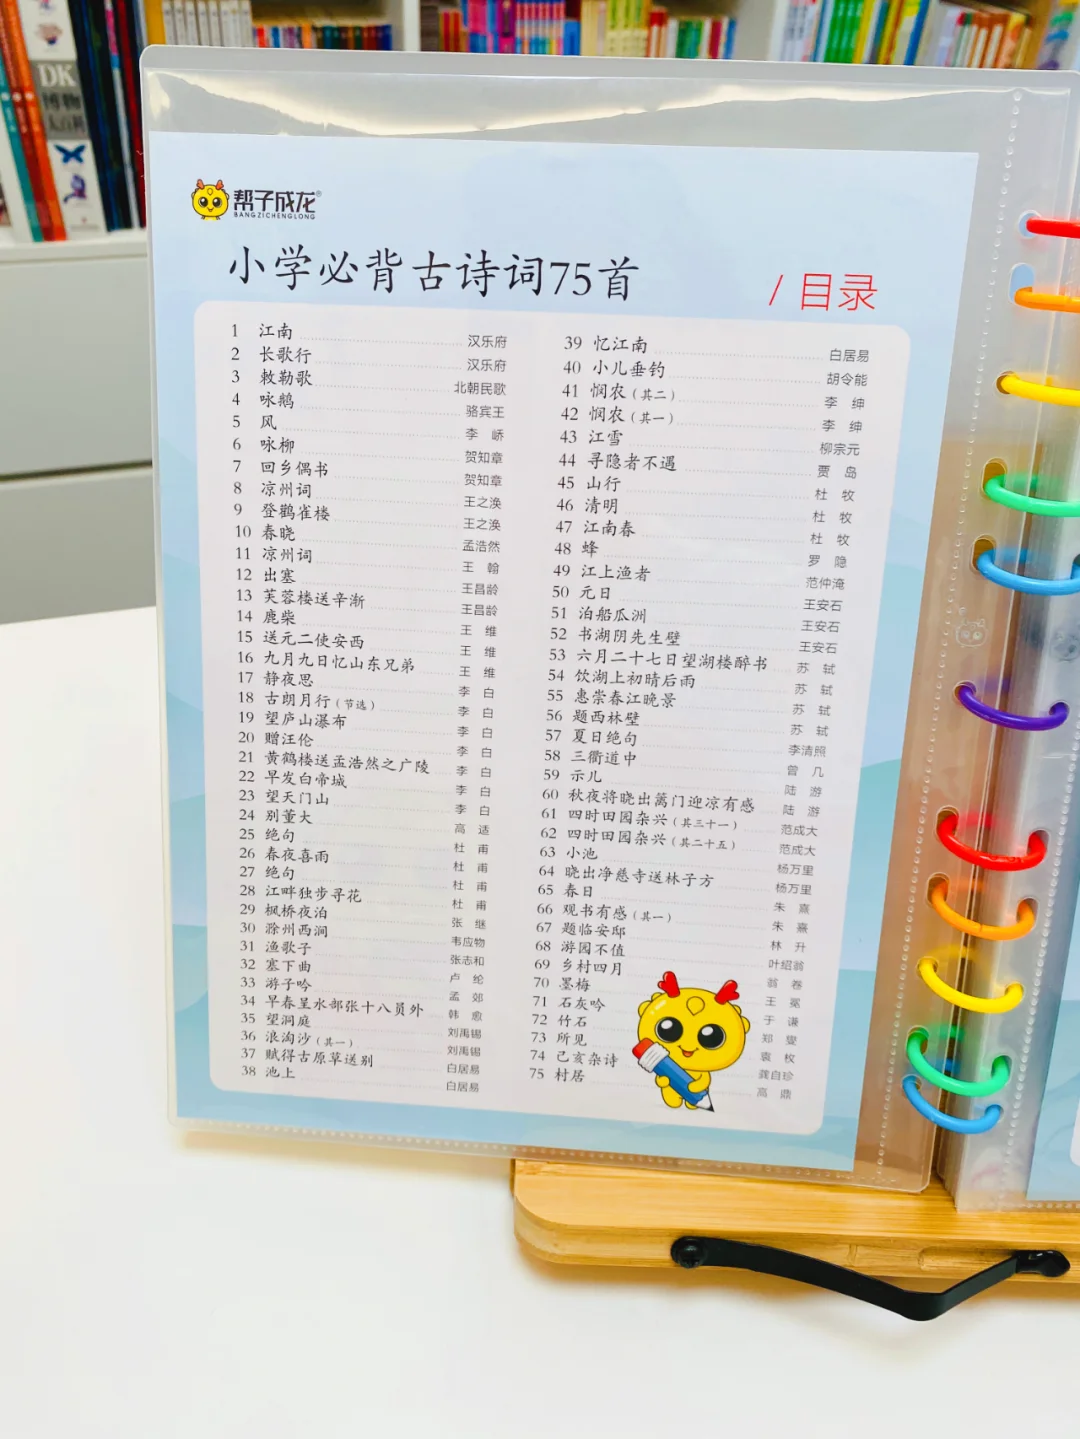 DK
博物
大百科
帮子成龙®
BANGZICHENGLONG
小学必背古诗词75首
/ 目录
1 江南 汉乐府
2 长歌行 汉乐府
3 敕勒歌 北朝民歌
4 咏鹅 骆宾王
5 风 李 峤
6 咏柳 贺知章
7 回乡偶书 贺知章
8 凉州词 王之涣
9 登鹳雀楼 王之涣
10 春晓 孟浩然
11 凉州词 王 翰
12 出塞 王昌龄
13 芙蓉楼送辛渐 王昌龄
14 鹿柴 王 维
15 送元二使安西 王 维
16 九月九日忆山东兄弟 王 维
17 静夜思 李 白
18 古朗月行（节选） 李 白
19 望庐山瀑布 李 白
20 赠汪伦 李 白
21 黄鹤楼送孟浩然之广陵 李 白
22 早发白帝城 李 白
23 望天门山 李 白
24 别董大 高 适
25 绝句 杜 甫
26 春夜喜雨 杜 甫
27 绝句 杜 甫
28 江畔独步寻花 杜 甫
29 枫桥夜泊 张 继
30 滁州西涧 韦应物
31 渔歌子 张志和
32 塞下曲 卢 纶
33 游子吟 孟 郊
34 早春呈水部张十八员外 韩 愈
35 望洞庭 刘禹锡
36 浪淘沙（其一） 刘禹锡
37 赋得古原草送别 白居易
38 池上 白居易
39 忆江南 白居易
40 小儿垂钓 胡令能
41 悯农（其二） 李 绅
42 悯农（其一） 李 绅
43 江雪 柳宗元
44 寻隐者不遇 贾 岛
45 山行 杜 牧
46 清明 杜 牧
47 江南春 杜 牧
48 蜂 罗 隐
49 江上渔者 范仲淹
50 元日 王安石
51 泊船瓜洲 王安石
52 书湖阴先生壁 王安石
53 六月二十七日望湖楼醉书 苏 轼
54 饮湖上初晴后雨 苏 轼
55 惠崇春江晚景 苏 轼
56 题西林壁 苏 轼
57 夏日绝句 李清照
58 三衢道中 曾 几
59 示儿 陆 游
60 秋夜将晓出篱门迎凉有感 陆 游
61 四时田园杂兴（其三十一） 范成大
62 四时田园杂兴（其二十五） 范成大
63 小池 杨万里
64 晓出净慈寺送林子方 杨万里
65 春日 朱 熹
66 观书有感（其一） 朱 熹
67 题临安邸 林 升
68 游园不值 叶绍翁
69 乡村四月 翁 卷
70 墨梅 王 冕
71 石灰吟 于 谦
72 竹石 郑 燮
73 所见 袁 枚
74 己亥杂诗 龚自珍
75 村居 高 鼎